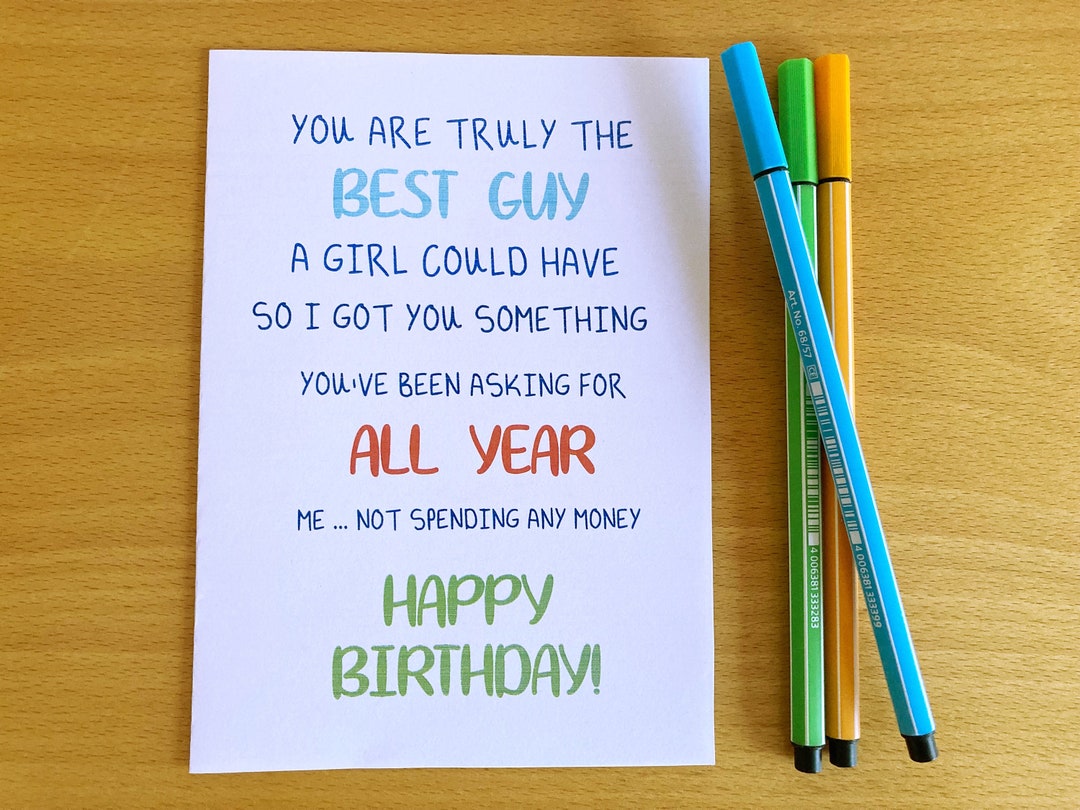 YOU ARE TRULY THE
BEST GUY
A GIRL COULD HAVE
SO I GOT YOU SOMETHING
YOU'VE BEEN ASKING FOR
ALL YEAR
ME ... NOT SPENDING ANY MONEY
HAPPY
BIRTHDAY!
Art. No. 68/57 CE
4 006381 333283
4 006381 333399